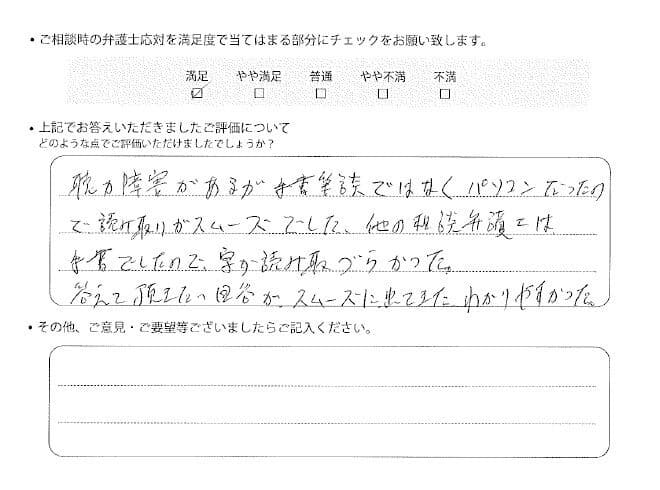 ・ご相談時の弁護士応対を満足度で当てはまる部分にチェックをお願い致します。
満足 やや満足 普通 やや不満 不満
☑ □ □ □ □
・上記でお答えいただきましたご評価について
どのような点でご評価いただけましたでしょうか？
聴力障害があるが手書筆談ではなくパソコンだったの
で読み取りがスムーズでした、他の相談弁護士は
手書でしたので、字が読み取づらかった。
答えて頂きたい回答が、スムーズに出てきた わかりやすかった。
・その他、ご意見・ご要望等ございましたらご記入ください。